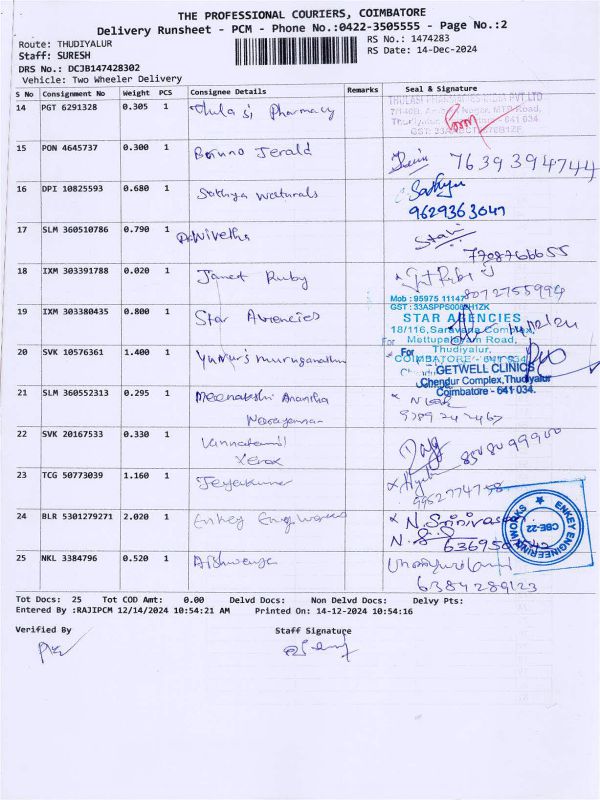 THE PROFESSIONAL COURIERS, COIMBATORE
Delivery Runsheet - PCM - Phone No.:0422-3505555 - Page No.:2
Route: THUDIYALUR
RS No.: 1474283
Staff: SURESH
RS Date: 14-Dec-2024
DRS No.: DCJB147428302
Vehicle: Two Wheeler Delivery
S No Consignment No Weight PCS Consignee Details Remarks Seal & Signature
14 PGT 6291328 0.305 1 Thulasi Pharmacy
15 PON 4645737 0.300 1 Jerald 7639394744
16 DPI 10825593 0.680 1 Sathya Naturals Sathya
9629363047
17 SLM 360510786 0.790 1 Dr. Nivetha
7708766655
18 IXM 303391788 0.020 1 Janet Ruby
8072755994
Mob : 95975 11147
19 IXM 303380435 0.800 1 Star Agencies
STAR AGENCIES
18/116, Saravana Complex,
Mettupalayam Road,
For Thudiyalur,
COIMBATORE - 641 034
20 SVK 10576361 1.400 1
For
GETWELL CLINICS
Chendur Complex,Thudiyalur
Coimbatore - 641 034.
21 SLM 360552313 0.295 1 Meenakshi Anantha
Narayanan
22 SVK 20167533 0.330 1 Vannatamil
Xerox
23 TCG 50773039 1.160 1 Jeyakumar
9952774758
24 BLR 5301279271 2.020 1 Enkey Engineers N. Srinivasan
ENKEY ENGINEERING WORKS
CBE-22
25 NKL 3384796 0.520 1 Aishwarya
6384289123
Tot Docs: 25 Tot COD Amt: 0.00 Delvd Docs: Non Delvd Docs: Delvy Pts:
Entered By :RAJIPCM 12/14/2024 10:54:21 AM Printed On: 14-12-2024 10:54:16
Verified By Staff Signature